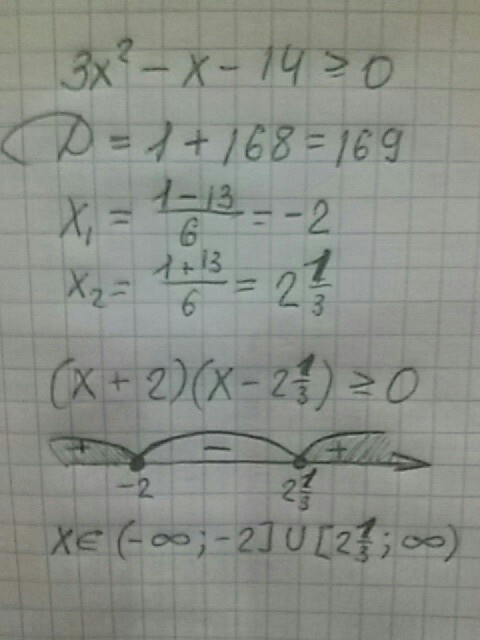 3x² - x - 14 ≥ 0
D = 1 + 168 = 169
x₁ = (1-13)/6 = -2
x₂ = (1+13)/6 = 2 1/3
(x + 2)(x - 2 1/3) ≥ 0
+ - +
-2 2 1/3
x ∈ (-∞; -2] ∪ [2 1/3; ∞)